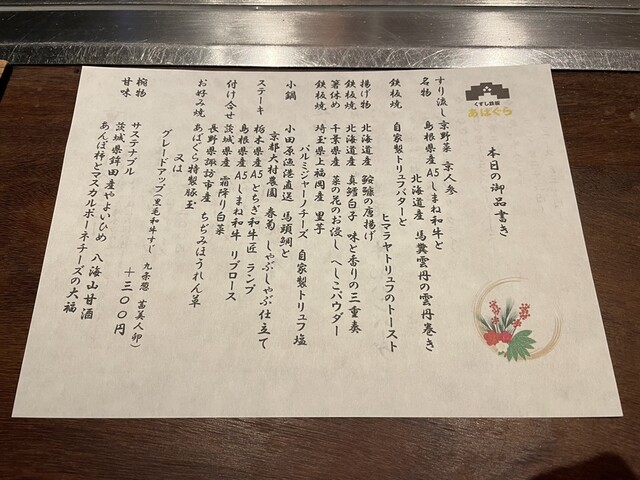 くずし鉄板
あばぐら
本日の御品書き
すり流し 京野菜 京人参
名物 島根県産A5しまね和牛と
北海道産 馬糞雲丹の雲丹巻き
鉄板焼 自家製トリュフバターと
ヒマラヤトリュフのトースト
揚げ物 北海道産 鮟鱇の唐揚げ
鉄板焼 北海道産 真鱈白子 味と香りの三重奏
箸休め 千葉県産 菜の花のお浸し へしこパウダー
鉄板焼 埼玉県上福岡産 里芋
パルミジャーノチーズ 自家製トリュフ塩
小鍋 小田原漁港直送 馬頭鯛と
京都大村農園 春菊 しゃぶしゃぶ仕立て
ステーキ 栃木県産A5とちぎ和牛匠 ランプ
島根県産A5しまね和牛 リブロース
付け合せ 茨城県産 霜降り白菜
長野県諏訪市産 ちぢみほうれん草
お好み焼 あばぐら特製豚玉
又は
グレードアップ(黒毛和牛すじ 九条葱 茜美人卵)
+三〇〇円
椀物 サステナブル
甘味 茨城県鉾田産やよいひめ 八海山甘酒
あんぽ柿とマスカルポーネチーズの大福